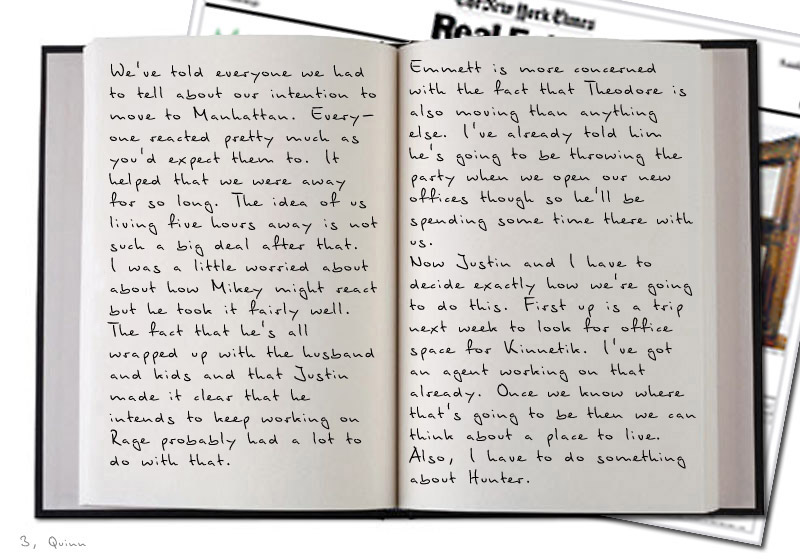 The New York Times
We've told everyone we had
to tell about our intention to
move to Manhattan. Every-
one reacted pretty much as
you'd expect them to. It
helped that we were away
for so long. The idea of us
living five hours away is not
such a big deal after that.
I was a little worried about
about how Mikey might react
but he took it fairly well.
The fact that he's all
wrapped up with the husband
and kids and that Justin
made it clear that he
intends to keep working on
Rage probably had a lot to
do with that.
Emmett is more concerned
with the fact that Theodore is
also moving than anything
else. I've already told him
he's going to be throwing the
party when we open our new
offices though so he'll be
spending some time there with
us.
Now Justin and I have to
decide exactly how we're going
to do this. First up is a trip
next week to look for office
space for Kinnetik. I've got
an agent working on that
already. Once we know where
that's going to be then we can
think about a place to live.
Also, I have to do something
about Hunter.
3, Quinn